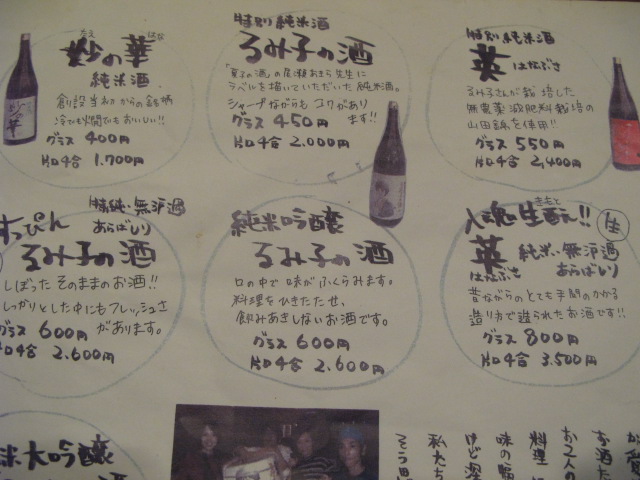 妙の華
たえ はな
純米酒
創設当初からの銘柄
冷でも燗でもおいしい!!
グラス 400円
片口4合 1.700円
特別純米酒
るみ子の酒
「夏子の酒」の尾瀬あきら先生に
ラベルを描いていただいた純米酒。
シャープながらも コクがあり
ます!!
グラス 450円
片口4合 2.000円
特別純米酒
英 はなぶさ
るみ子さんが栽培した
無農薬 減肥料栽培の
山田錦を使用!!
グラス 550円
片口4合 2,400円
すっぴん 特純・無沪過
あらばしり
るみ子の酒
しぼった そのままのお酒!!
しっかりとした中にもフレッシュさ
があります。
グラス 600円
片口4合 2.600円
純米吟醸
るみ子の酒
口の中で味がふくらみます。
料理をひきたたせ、
飲みあきしないお酒です。
グラス 600円
片口4合 2.600円
入魂 生酛!! 生
きもと
英 純米・無沪過
はなぶさ あらばしり
昔ながらのとても手間のかかる
造り方で造られたお酒です!!
グラス 800円
片口4合 3.500円
純米大吟醸
お酒た
お2人の
料理
味の幅
ほど深
私たち